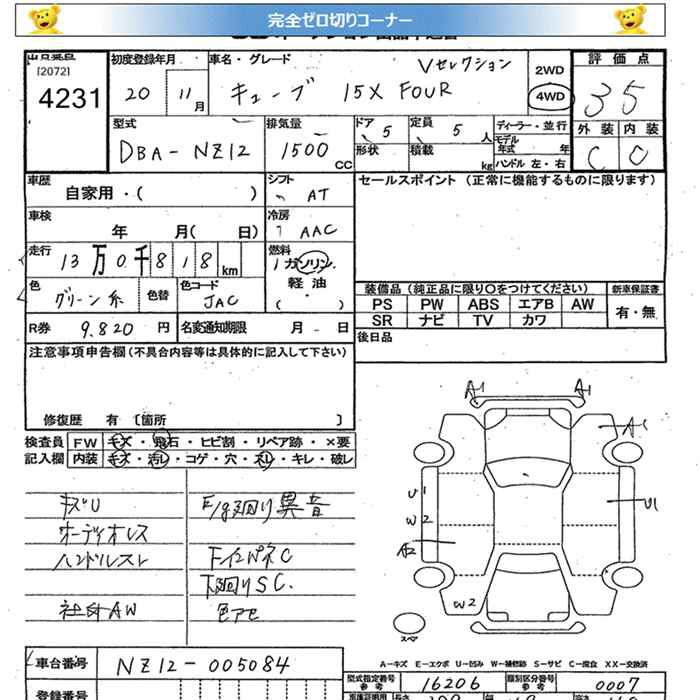 完全ゼロ切りコーナー
出品番号
(2072)
4231
初度登録年月
20 11月
車名・グレード
Vセレクション
キューブ 15X FOUR
2WD
4WD
評価点
35
外装 内装
C D
型式
DBA-NZ12
排気量
1500 CC
ドア 5
定員 5人
形状
積載 kg
ディーラー・並行
モデル年式 年
ハンドル 左・右
車歴
自家用・( )
シフト
AT
セールスポイント (正常に機能するものに限ります)
車検
年 月( 日)
冷房
AAC
走行
13万0千818km
燃料
ガソリン
軽油
( ・ )
色
グリーン系
色替
色コード
JAC
装備品 (純正品に限り○をつけてください)
新車保証書
PS PW ABS エアB AW
有・無
SR ナビ TV カワ
R券 9.820円
名変通知期限 月 日
後日品
注意事項申告欄(不具合内容等は具体的に記入して下さい)
修復歴 有 〔箇所 〕
検査員 FW キズ・飛石・ヒビ割・リペア跡・×要
記入欄 内装 キズ・汚レ・コゲ・穴・スレ・キレ・破レ
キズU
E/g廻り異音
オーディオレス
ハンドルスレ
下廻りSC.
社外AW
色アセ
A1 A1
A1
U1
W2
A2
U1
W2
スペア
A-キズ E-エクボ U-凹み W-補修跡 S-サビ C-腐食 XX-交換済
車台番号
NZ12-005084
型式指定番号
参考
16206
類別区分番号
参考
0007
登録番号
長さ
幅
高さ